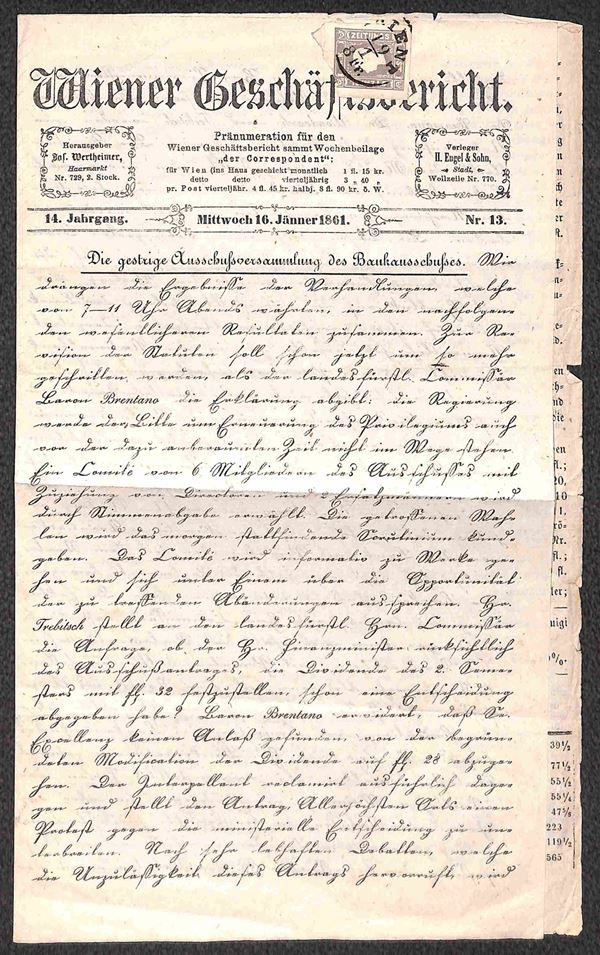 WIEN
ZEITUNGS
Wiener Geschäftsbericht.
Herausgeber
Jos. Wertheimer,
Haarmarkt
Nr. 729, 2. Stock.
Pränumeration für den
Wiener Geschäftsbericht sammt Wochenbeilage
„der Correspondent“:
für Wien (ins Haus geschickt) monatlich 1 fl. 15 kr.
detto detto vierteljährig 3 „ 40 „
pr. Post vierteljähr. 4 fl. 45 kr. halbj. 8 fl. 90 kr. ö. W.
Verleger
H. Engel & Sohn,
Stadt,
Wollzeile Nr. 770.
14. Jahrgang.
Mittwoch 16. Jänner 1861.
Nr. 13.
Die gestrige Ausschußversammlung des Bankausschußes. Wir
drängen die Ergebnisse der Verhandlungen, welche
von 7–11 Uhr Abends währten, in den nachfolgen-
den wesentlicheren Resultaten zusammen. Zur Re-
vision der Statuten soll schon jetzt um so mehr
geschritten werden, als der landesfürstl. Commissär
Baron Brentano die Erklärung abgibt: die Regierung
werde der Bitte um Erneuerung des Privilegiums auch
vor der dazu anberaumten Zeit nicht im Wege stehen.
Ein Comité von 6 Mitgliedern des Ausschusses mit
Zuziehung von Directoren und 2 Ersatzmännern wird
durch Stimmenabgabe erwählt. Die getroffenen Wah-
len wird das morgen stattfindende Scrutinium kund-
geben. Das Comité wird informativ zu Werke ge-
hen und sich unter Einem über die Opportunität
der zu treffenden Abänderungen aussprechen. Hr.
Trebitsch stellt an den landesfürstl. Hrn. Commissär
die Anfrage, ob der Hr. Finanzminister rücksichtlich
des Ausschußantrages, die Dividende des 2. Seme-
sters mit fl. 32 festzustellen, schon eine Entscheidung
abgegeben habe? Baron Brentano erwidert, daß Se.
Excellenz keinen Anlaß gefunden, von der begrün-
deten Modification der Dividende auf fl. 28 abzuge-
hen. Der Interpellant reclamirt ausführlich dage-
gen und stellt den Antrag, Allerhöchsten Orts einen
Protest gegen die ministerielle Entscheidung zu un-
terbreiten. Nach sehr lebhaften Debatten, welche
die Unzulässigkeit dieses Antrags hervorruft, wird
39½
77½
55½
55¼
47⅝
223
119½
565